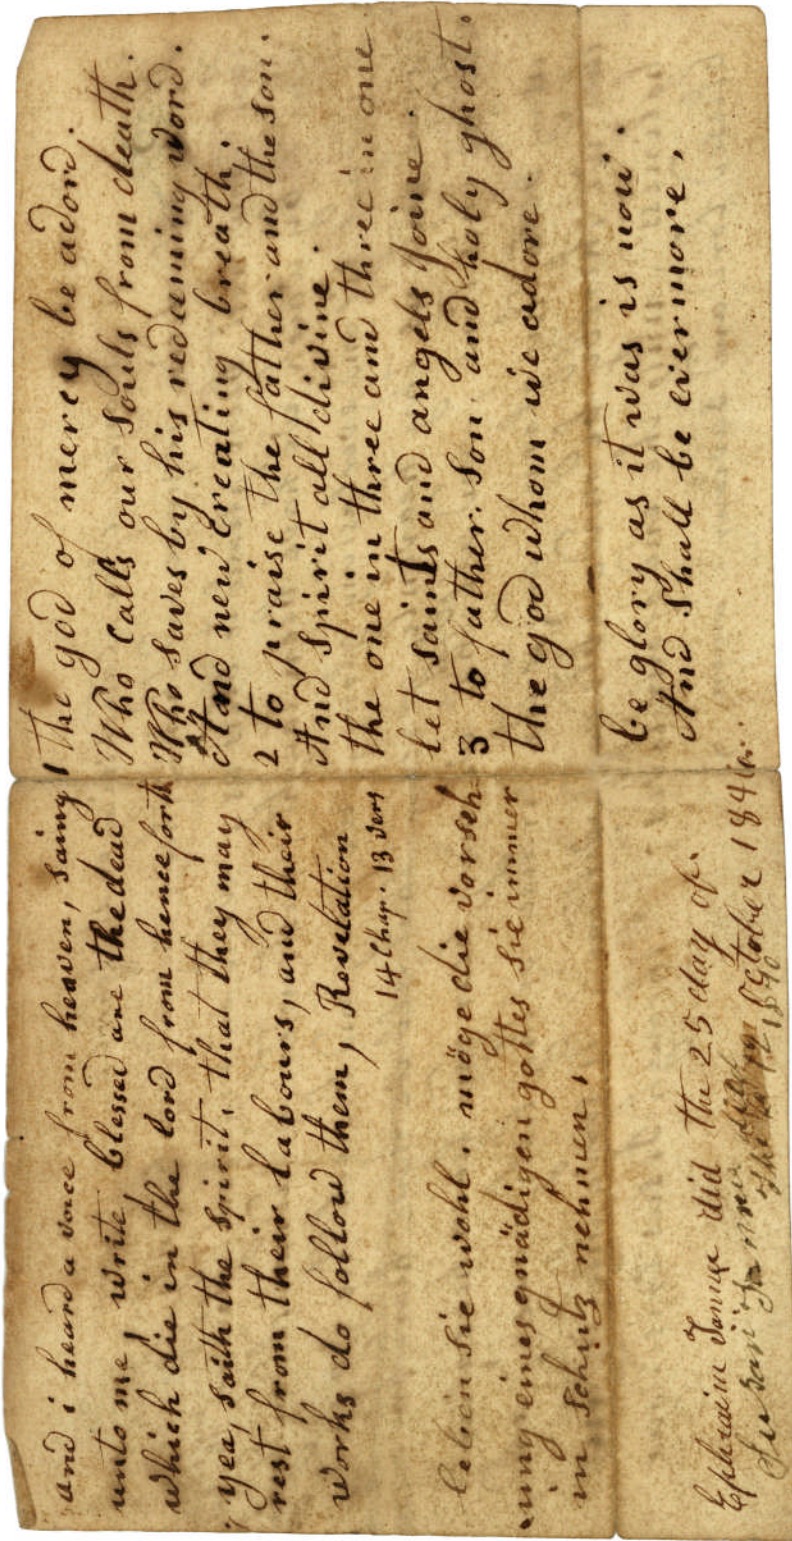 and i heard a voice from heaven, saing
unto me, write, blessed are the dead
which die in the lord from henceforth
yea, saith the spirit, that they may
rest from their labours, and their
works do follow them, Revelation
14 Chap. 13 vers
leben sie wohl. möge die vorseh
ung eines gnädigen gottes sie immer
in schutz nehmen,
Ephraim did the 25 day of.
October 184
Susan died
the 12 1890
1 The god of mercy be adord.
Who Calls our Souls from death.
Who saves by his redaming word.
And new creating breath.
2 to praise the father and the son.
And spirit all divine.
the one in three and three in one
let saints and angels joine.
3 to father. Son. and holy ghost.
the god whom we adore.
be glory as it was is now.
And Shall be evermore.